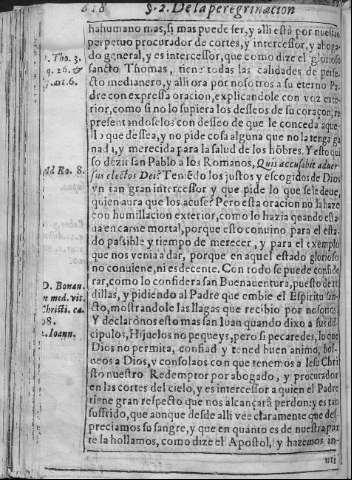 618 §. 2. De la peregrinacion
hahumano mas, si mas puede ser, y alli està por nuestro
perpetuo procurador de cortes, y intercessor, y aboga-
do general, y es intercessor, que como dize el glorioso
sancto Thomas, tiene todas las calidades de perfe-
cto medianero, y alli ora por nosotros a su eterno Pa-
dre con expressa oracion, explicandole con voz exte-
rior, como si no lo supiera los desseos de su coraçon, re
presentandoselos con desseo de que le conceda aque-
llo que dessea, y no pide cosa alguna que no la tenga ga
nada, y merecida para la salud de los hõbres. Y esto qui
so dezir san Pablo a los Romanos, Quis accusabit aduer
sus electos Dei? Teniẽdo los justos y escogidos de Dios
vn tan gran intercessor y que pide lo que se le deue,
quien aura que los acuse? Pero esta oracion no la haze
con humillacion exterior, como lo hazia quando esta-
ua en carne mortal, porque esto conuino para el esta-
do passible y tiempo de merecer, y para el exemplo
que nos venia a dar, porque en aquel estado glorioso
no conuiene, ni es decente. Con todo se puede conside
rar, como lo considera san Buenauentura, puesto de ro
dillas, y pidiendo al Padre que embie el Espiritu san-
cto, mostrandole las llagas que recibio por nosotros
Y declaronos esto mas san Iuan quando dixo a sus dis
cipulos, Hijuelos no pequeys, pero si pecaredes, lo que
Dios no permita, confiad y tened buen animo, bol-
ueos a Dios, y consolaos con que tenemos a Iesu Chri
sto nuestro Redemptor por abogado, y procurador
en las cortes del cielo, y es intercessor a quien el Padre
tiene gran respecto que nos alcançarà perdon: y es tan
sufrido, que aunque desde alli vee claramente que des
preciamos su sangre, y que en quanto es de nuestra par
te la hollamos, como dize el Apostol, y hazemos in-
D. Tho. 3.
q. 26. &
art. 6.
Ad Ro. 8.
D. Bonau.
in med. vit.
Christi. ca.
98.
1. Ioann.